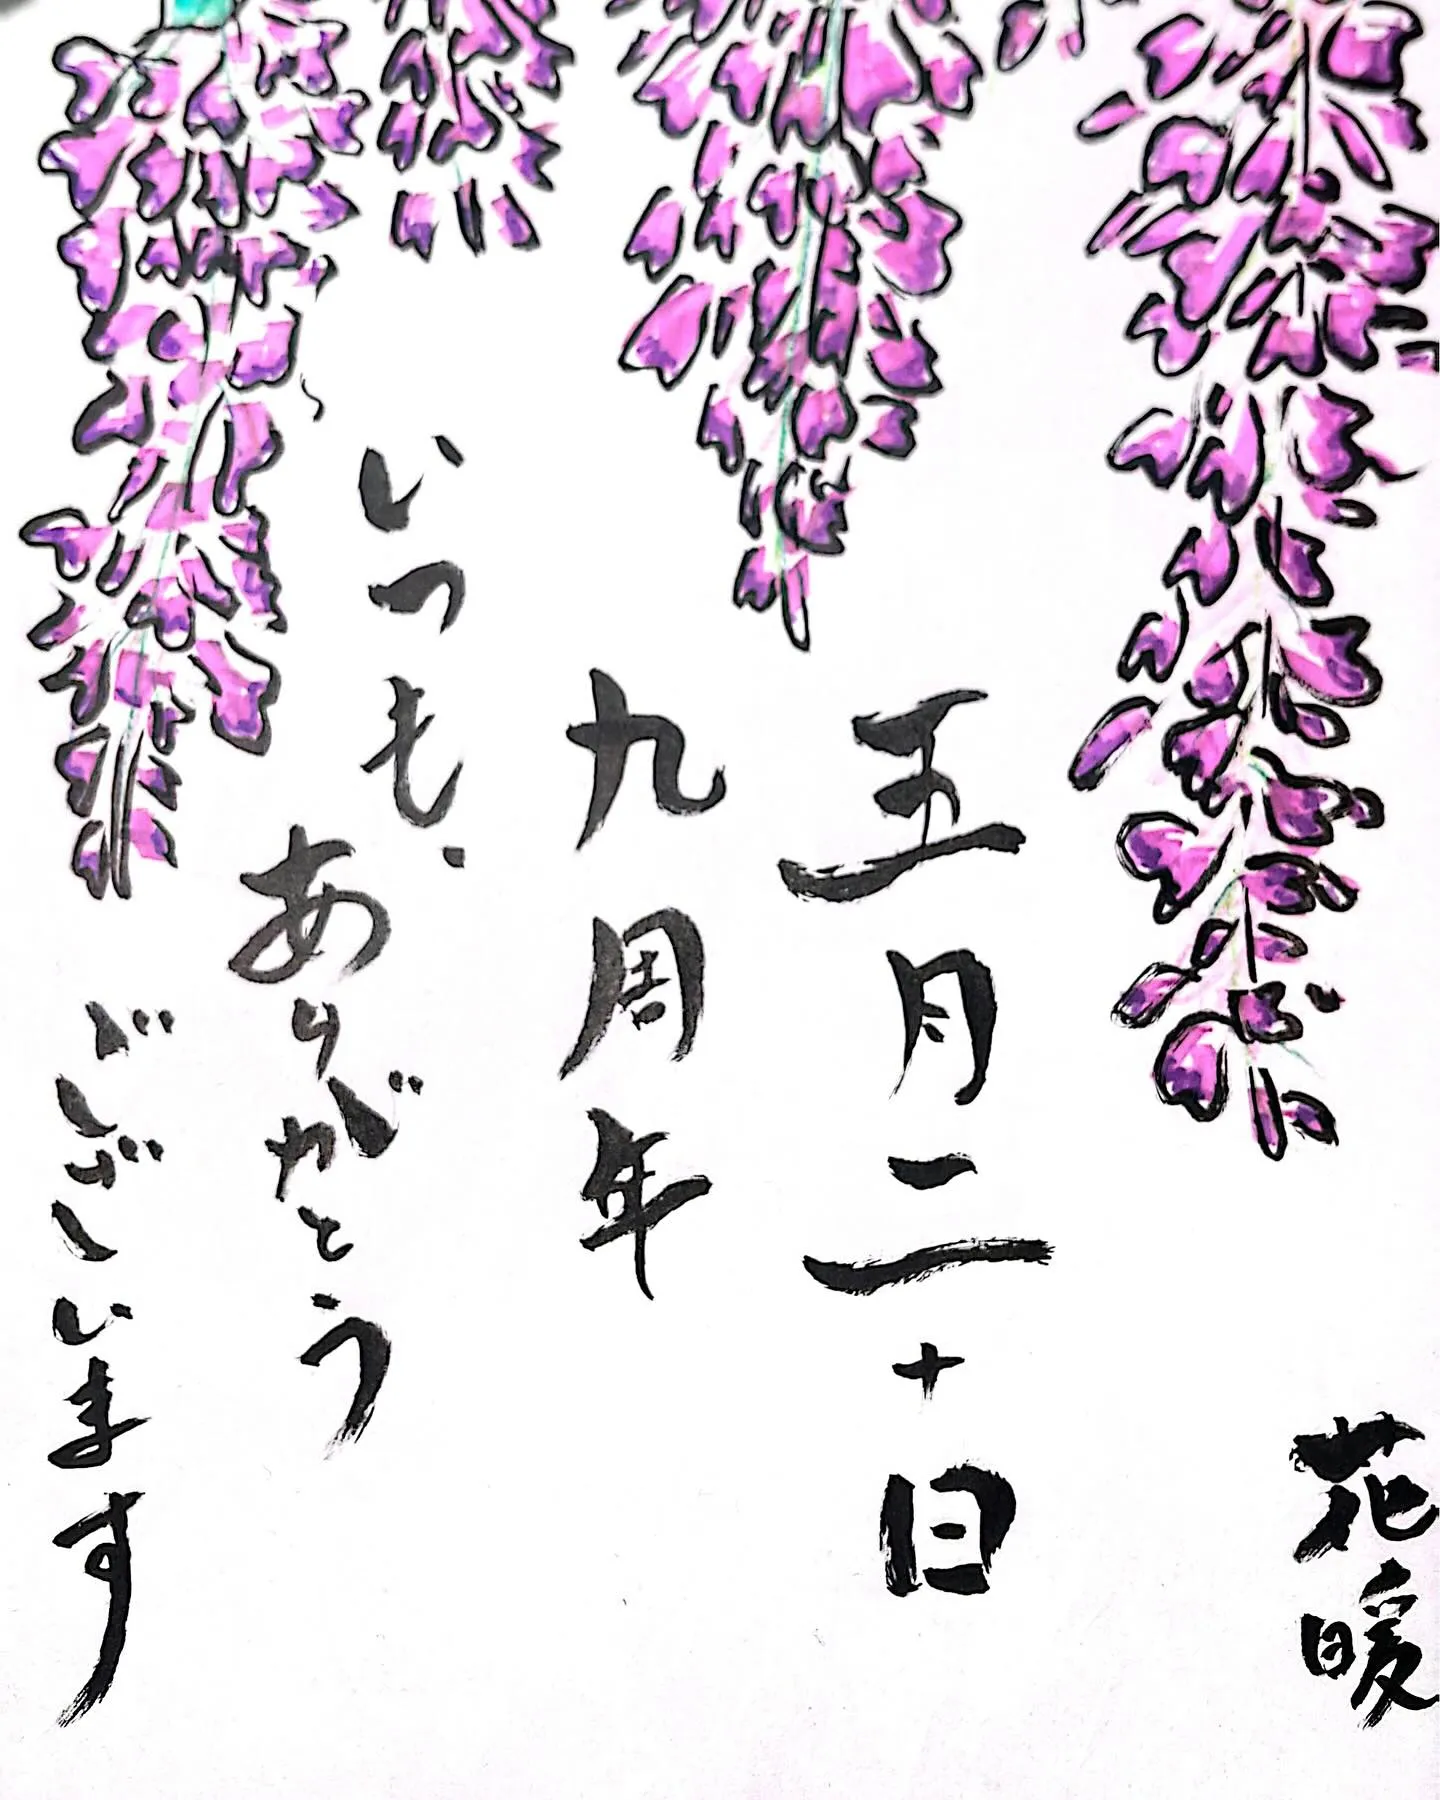 花暖
五月二十日
九周年
いつも、
ありがとう
ございます